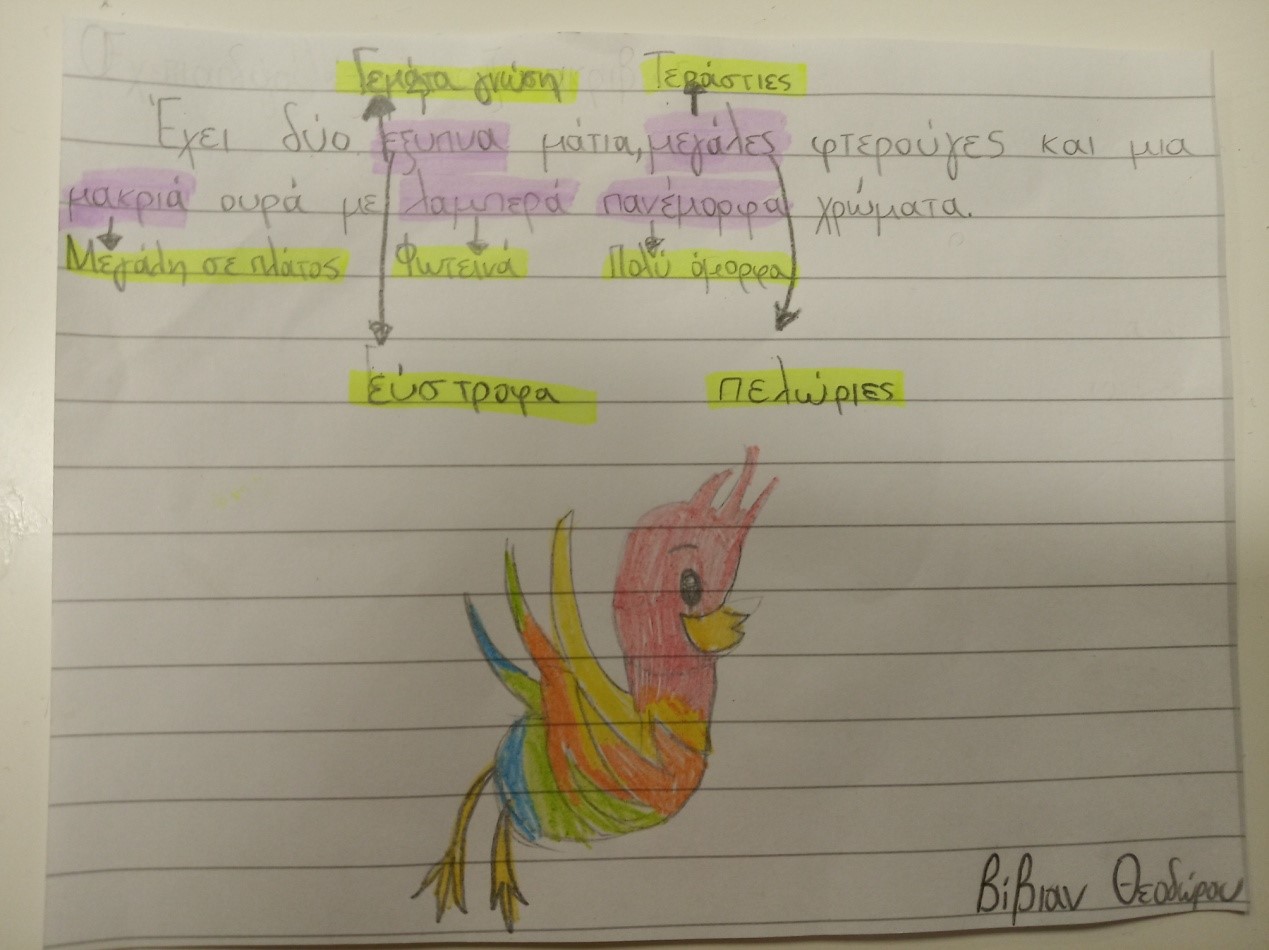 Γεμάτα γνώση Τεράστιες
Έχει δύο έξυπνα μάτια, μεγάλες φτερούγες και μια
μακριά ουρά με λαμπερά πανέμορφα χρώματα.
Μεγάλη σε πλάτος Φωτεινά Πολύ όμορφα
εύστροφα πελώριες
Βίβιαν Θεοδώρου